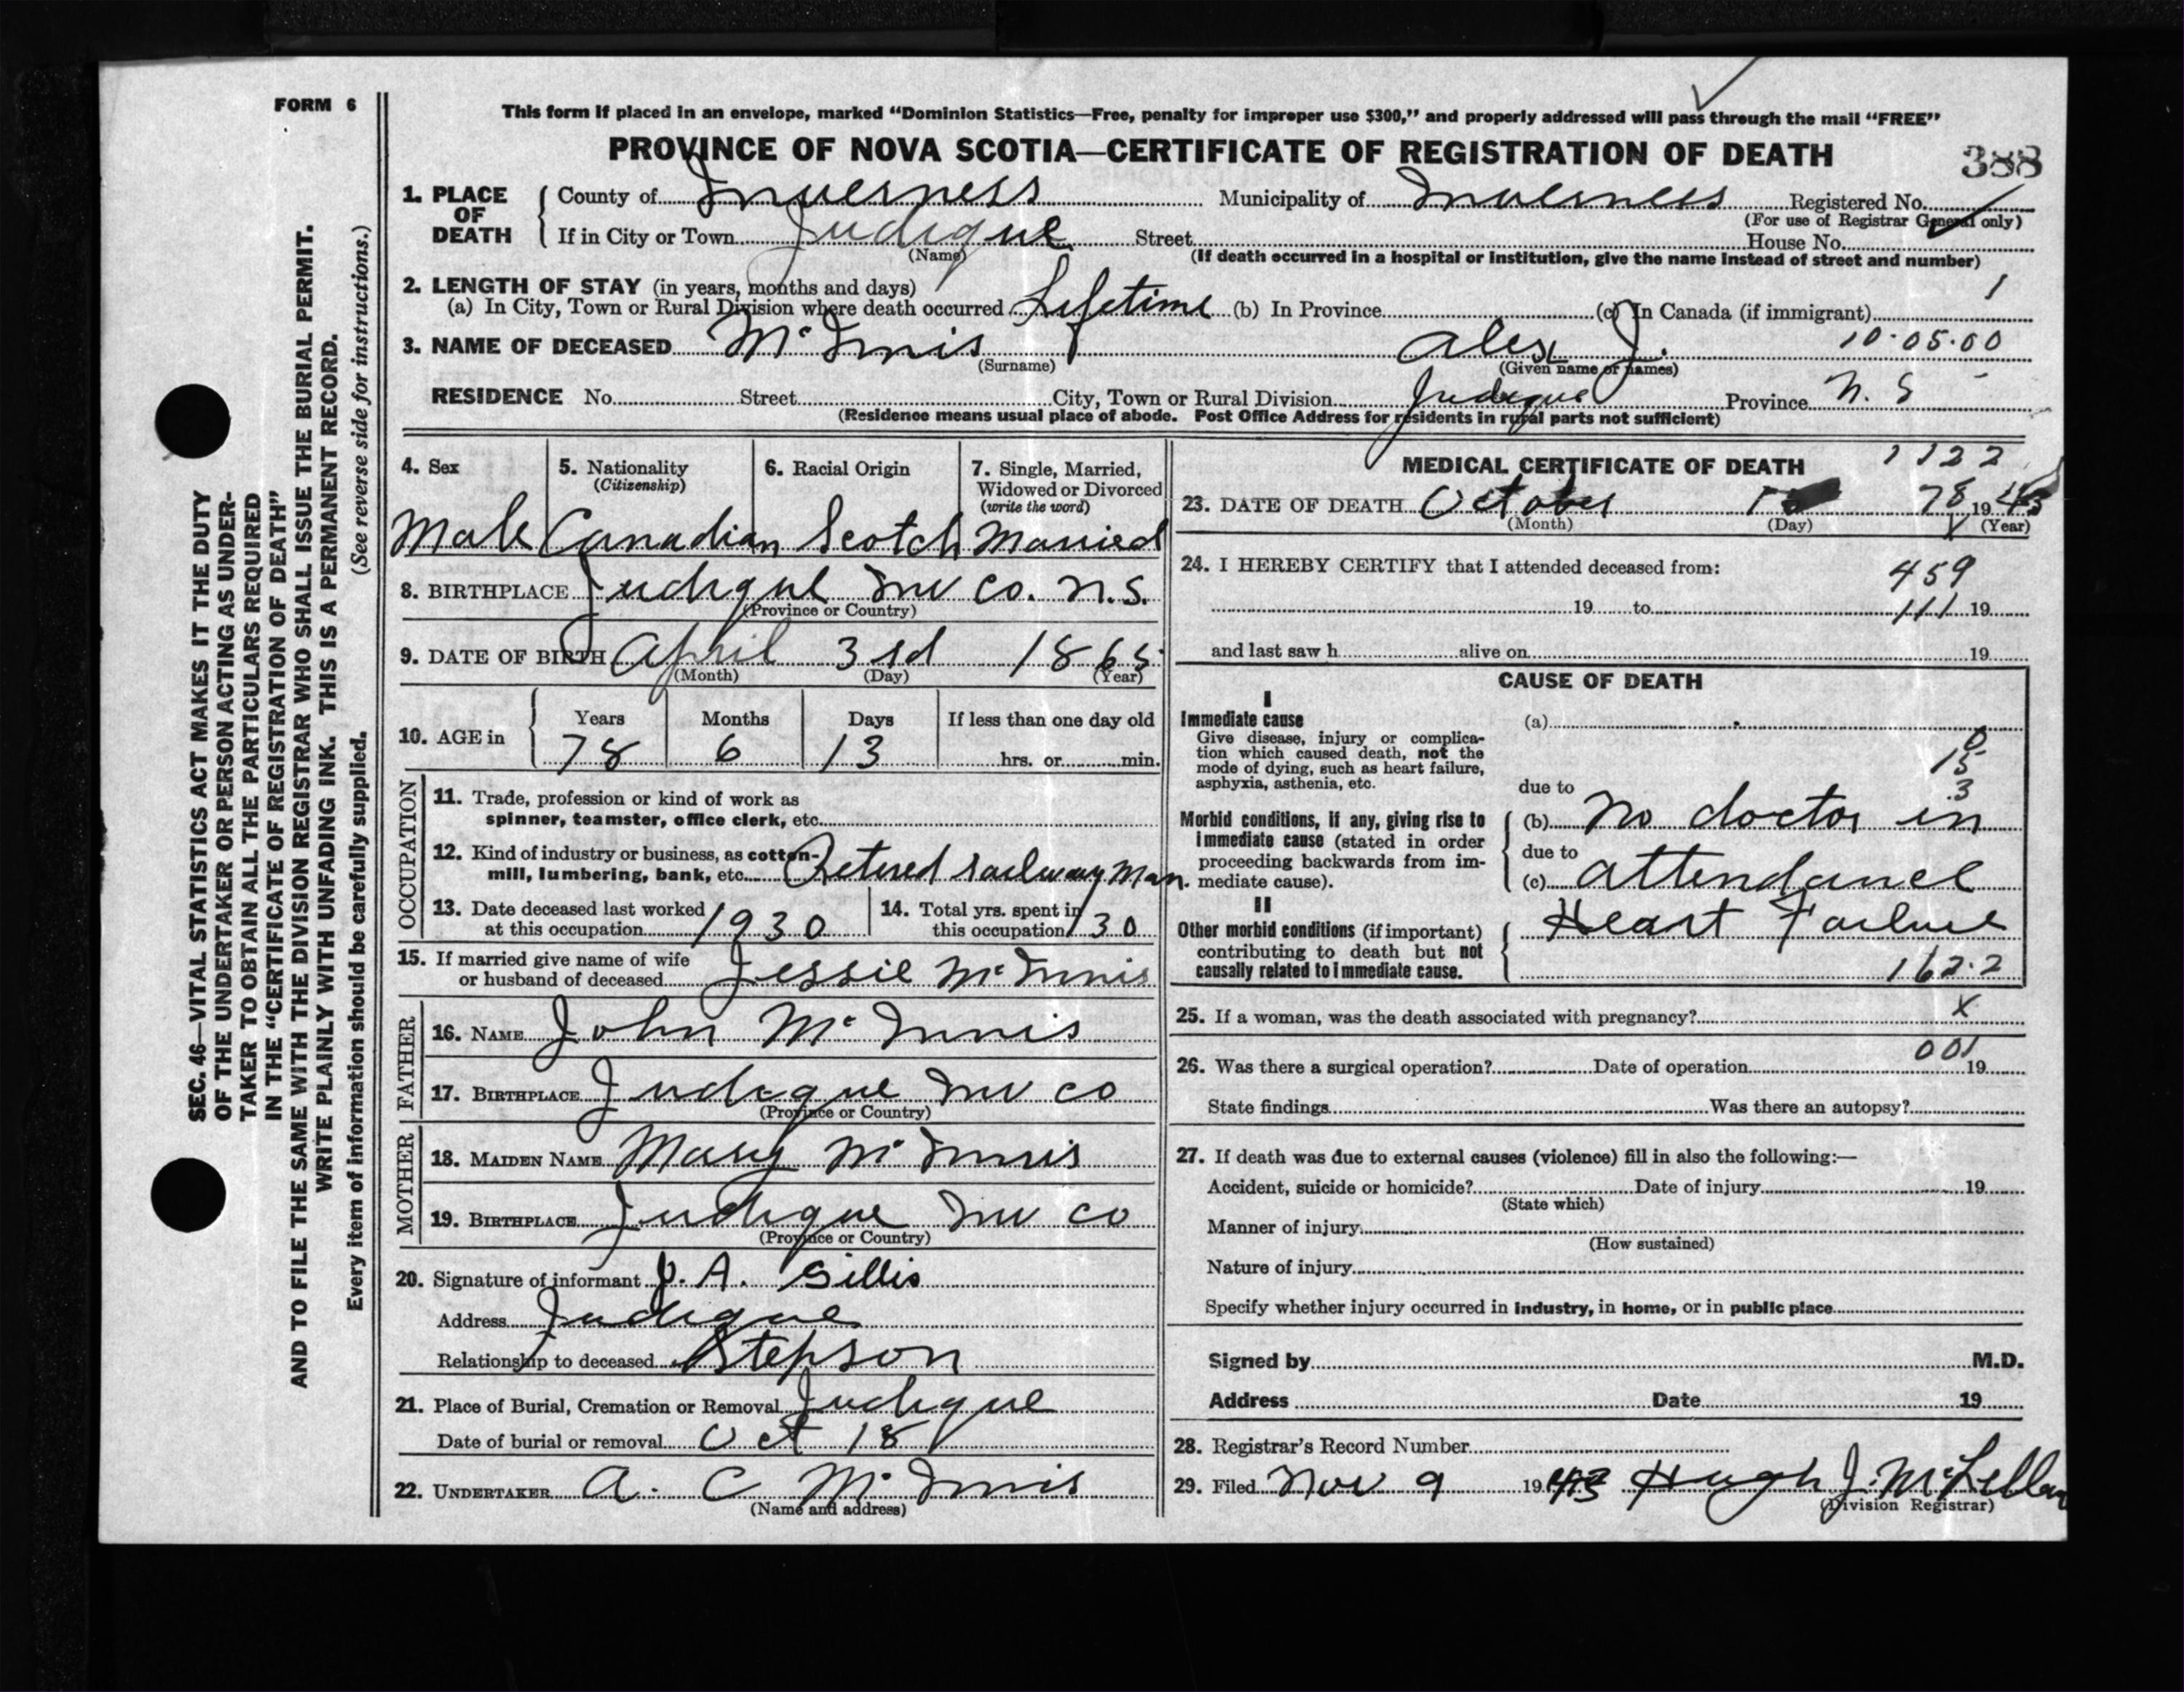 FORM 6
This form if placed in an envelope, marked "Dominion Statistics—Free, penalty for improper use $300," and properly addressed will pass through the mail "FREE"
PROVINCE OF NOVA SCOTIA—CERTIFICATE OF REGISTRATION OF DEATH
388
1. PLACE OF DEATH
County of Inverness Municipality of Inverness Registered No.
(For use of Registrar General only)
If in City or Town Judique Street House No.
(Name)
(If death occurred in a hospital or institution, give the name instead of street and number)
2. LENGTH OF STAY (in years, months and days) 1
(a) In City, Town or Rural Division where death occurred Lifetime (b) In Province (c) In Canada (if immigrant)
3. NAME OF DECEASED McInnis Alex J. 10-05-00
(Surname) (Given name or names)
RESIDENCE No. Street City, Town or Rural Division Judique Province N. S
(Residence means usual place of abode. Post Office Address for residents in rural parts not sufficient)
4. Sex
Male
5. Nationality
(Citizenship)
Canadian
6. Racial Origin
Scotch
7. Single, Married,
Widowed or Divorced
(write the word)
Married
8. BIRTHPLACE Judique Inv Co. N.S.
(Province or Country)
9. DATE OF BIRTH April 3rd 1865
(Month) (Day) (Year)
10. AGE in
Years Months Days If less than one day old
78 6 13 hrs. or min.
OCCUPATION
11. Trade, profession or kind of work as
spinner, teamster, office clerk, etc.
12. Kind of industry or business, as cotton-
mill, lumbering, bank, etc. Retired railway man.
13. Date deceased last worked
at this occupation 1930
14. Total yrs. spent in
this occupation 30
15. If married give name of wife
or husband of deceased Jessie McInnis
FATHER
16. NAME John McInnis
17. BIRTHPLACE Judique Inv Co
(Province or Country)
MOTHER
18. MAIDEN NAME Mary McInnis
19. BIRTHPLACE Judique Inv Co
(Province or Country)
20. Signature of informant J. A. Gillis
Address Judique
Relationship to deceased Stepson
21. Place of Burial, Cremation or Removal Judique
Date of burial or removal Oct 18
22. UNDERTAKER A. C McInnis
(Name and address)
MEDICAL CERTIFICATE OF DEATH 1122
23. DATE OF DEATH October 78 1943
(Month) (Day) X (Year)
24. I HEREBY CERTIFY that I attended deceased from: 459
19 to 111 19
and last saw h alive on 19
CAUSE OF DEATH
I
Immediate cause
Give disease, injury or complica-
tion which caused death, not the
mode of dying, such as heart failure,
asphyxia, asthenia, etc.
(a)
0
15
3
due to
Morbid conditions, if any, giving rise to
immediate cause (stated in order
proceeding backwards from im-
mediate cause).
(b) No doctor in
due to
(c) attendance
II
Other morbid conditions (if important)
contributing to death but not
causally related to immediate cause.
Heart Failure
162.2
25. If a woman, was the death associated with pregnancy? X
001
26. Was there a surgical operation? Date of operation 19
State findings Was there an autopsy?
27. If death was due to external causes (violence) fill in also the following:—
Accident, suicide or homicide? Date of injury 19
(State which)
Manner of injury
(How sustained)
Nature of injury
Specify whether injury occurred in industry, in home, or in public place
Signed by M.D.
Address Date 19
28. Registrar's Record Number
29. Filed Nov 9 1943 Hugh J. McLellan
(Division Registrar)
SEC. 46—VITAL STATISTICS ACT MAKES IT THE DUTY
OF THE UNDERTAKER OR PERSON ACTING AS UNDER-
TAKER TO OBTAIN ALL THE PARTICULARS REQUIRED
IN THE "CERTIFICATE OF REGISTRATION OF DEATH"
AND TO FILE THE SAME WITH THE DIVISION REGISTRAR WHO SHALL ISSUE THE BURIAL PERMIT.
WRITE PLAINLY WITH UNFADING INK. THIS IS A PERMANENT RECORD.
Every item of information should be carefully supplied. (See reverse side for instructions.)